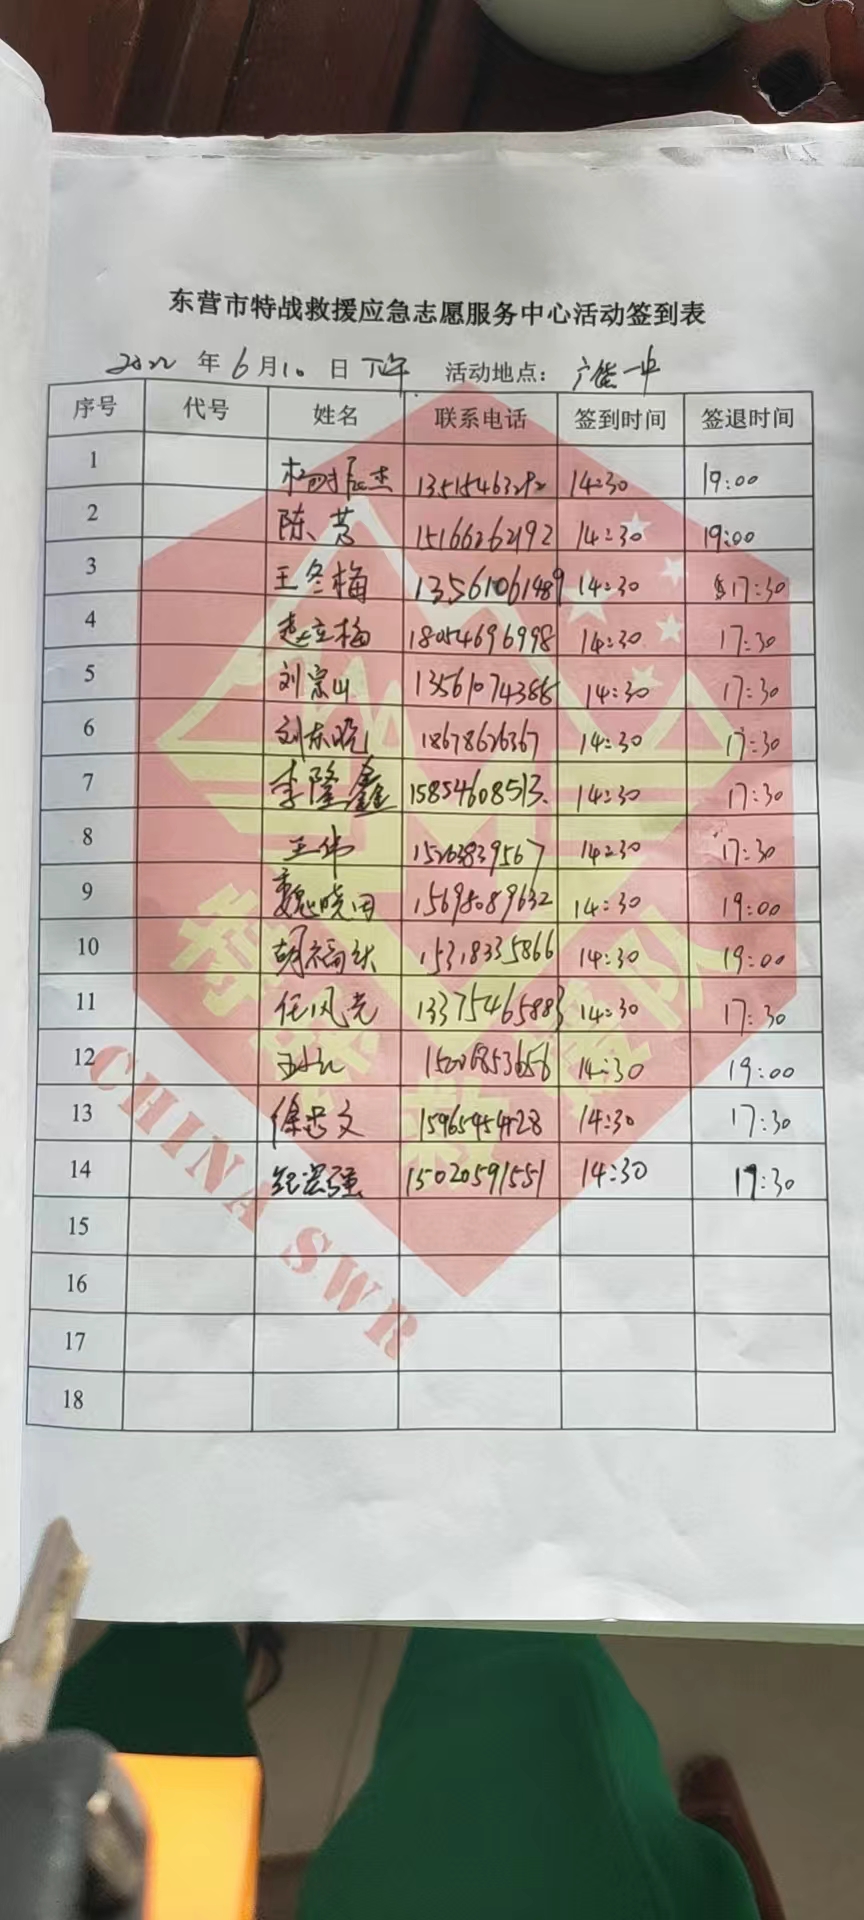 东营市特战救援应急志愿服务中心活动签到表
2022 年 6 月 10 日 下午 活动地点: 广饶一中
序号 代号 姓名 联系电话 签到时间 签退时间
1 杨树杰 13515463292 14:30 19:00
2 陈芳 15166262192 14:30 19:00
3 王冬梅 13561061989 14:30 17:30
4 赵立梅 18054696998 14:30 17:30
5 刘宗山 13561074386 14:30 17:30
6 刘东晓 18678626367 14:30 17:30
7 李隆鑫 15854608513 14:30 17:30
8 王伟 15263839567 14:30 17:30
9 魏晓田 15698089632 14:30 19:00
10 胡福 15318335866 14:30 19:00
11 任风光 13375465883 14:30 17:30
12 14:30 19:00
13 徐忠文 14:30 17:30
14 15020591551 14:30 19:30
15
16
17
18
特战救援队
CHINA SWR